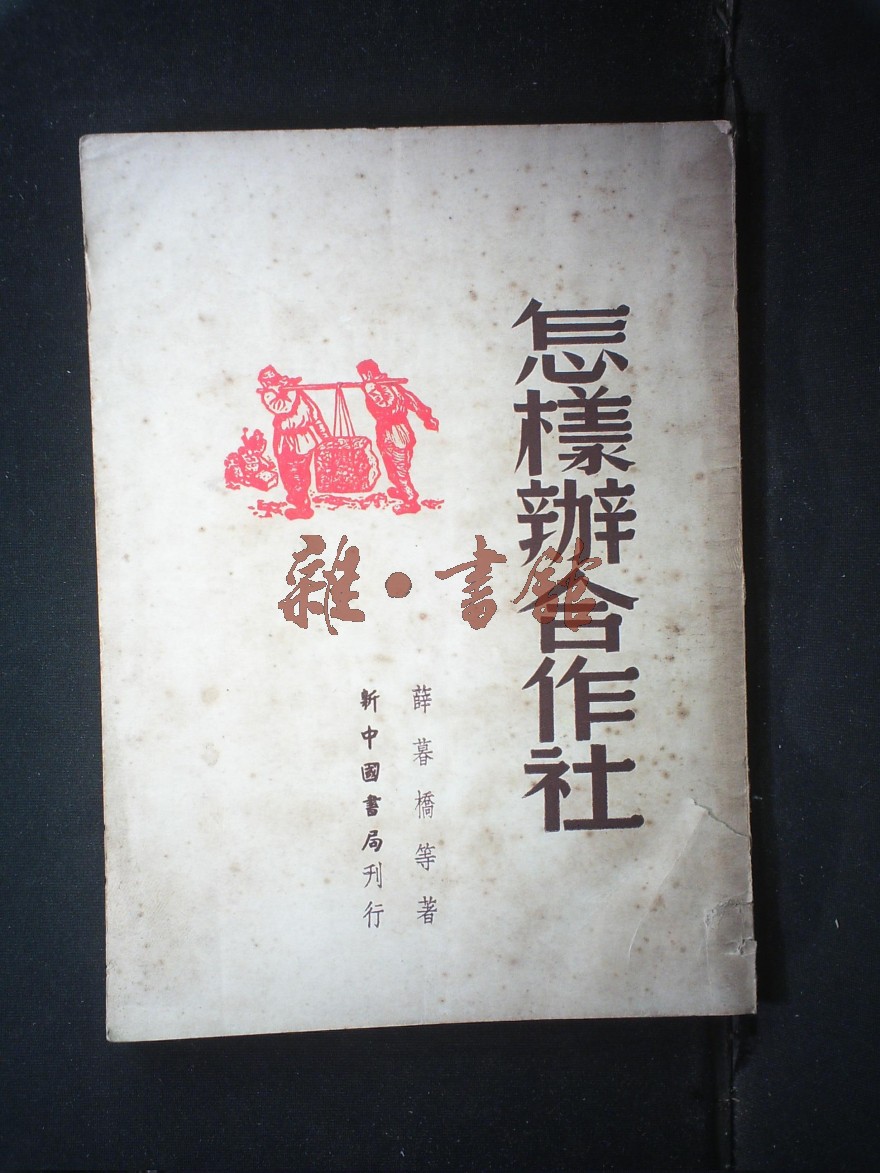 怎樣辦合作社
薛暮橋等著
新中國書局刊行
雜·書館